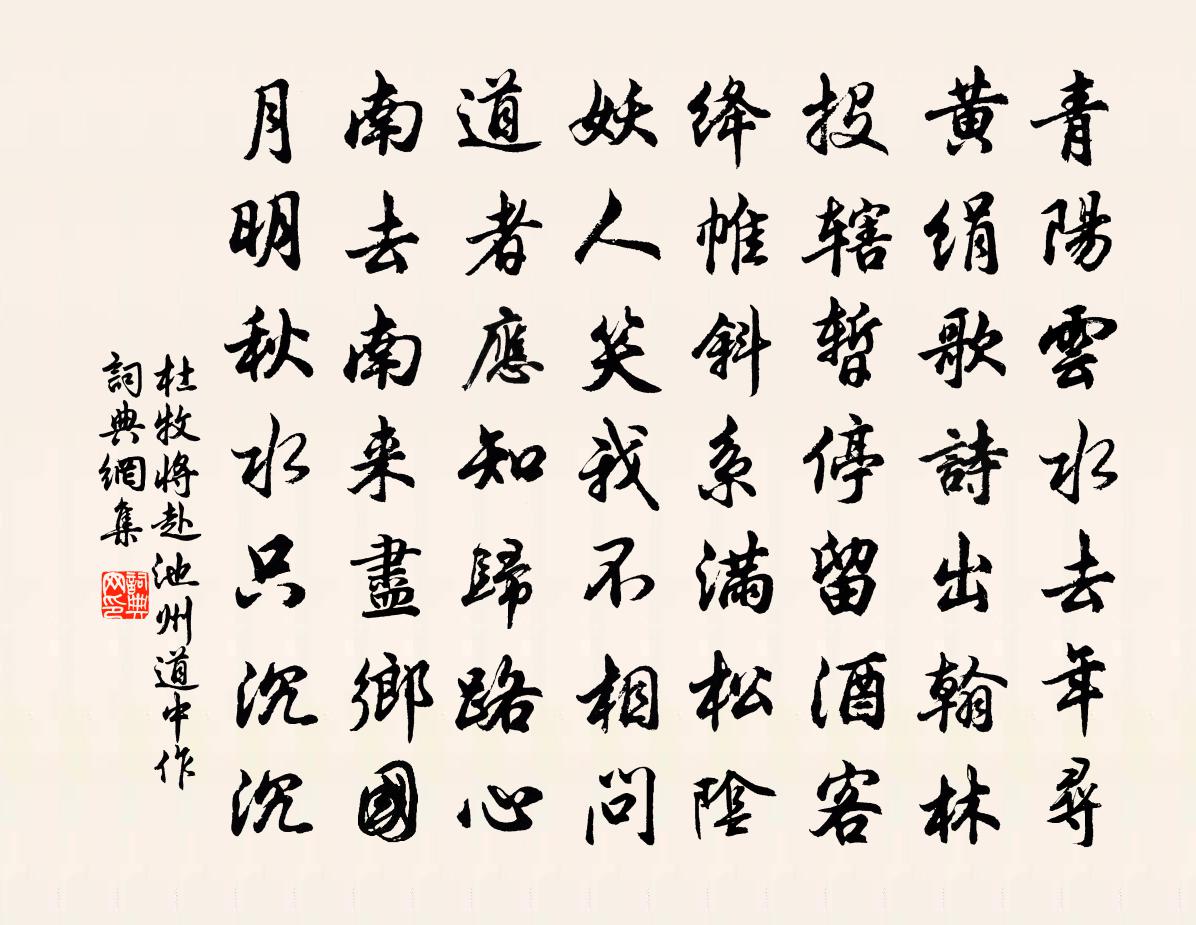 青陽雲水去年尋
黃絹歌詩出翰林
投辖暫停留酒客
绛帷斜系滿松陰
妖人笑我不相問
道者應知歸路心
南去南来盡鄉國
月明秋水只沉沉
杜牧將赴池州道中作
詞典網集
詞典
网印